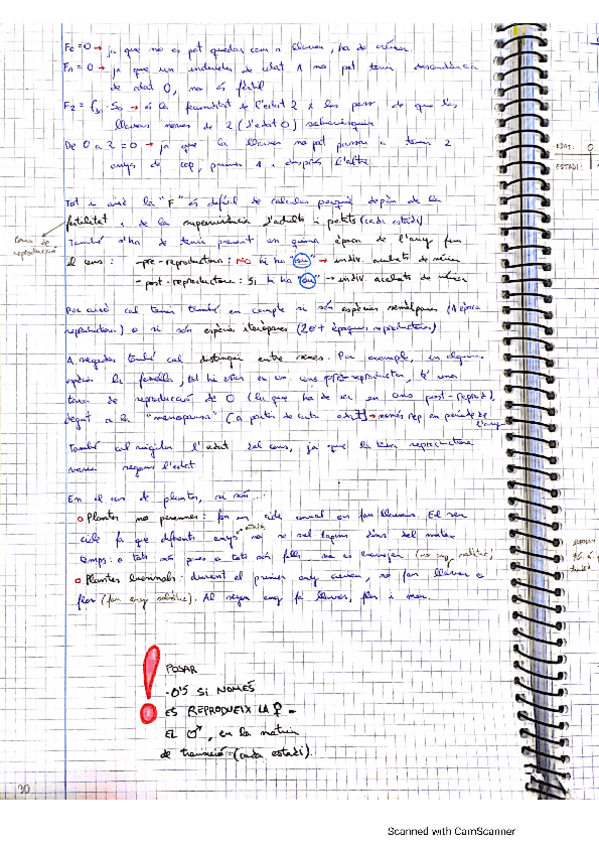 F0 = 0 → ja que no es pot quedar com a llavor, ha de créixer.
F1 = 0 → ja que un individu de edat 1 no pot tenir descendència
de edat 0, no és fèrtil
F2 = · S0 → és la fecunditat de l'edat 2 x les de que les
llavors noves de 2 (l'edat 0) sobrevisquin
De 0 a 2 = 0 → ja que la llavor no pot passar a tenir 2
anys de cop, primer 1 i després l'altre
Tot i això la "F" és difícil de calcular perquè depèn de la
fertilitat i de la supervivència d'adults i petits (cada estadi)
taxa de
reproducció
També s'ha de tenir present en quina època de l'any fem
el cens: - pre-reproductora: NO hi ha "ou" → indiv. acabats de néixer
- post-reproductora: SÍ hi ha "ou" → indiv. acabats de néixer
Per això cal tenir també en compte si són espècies semèlpares (1 època
reproductora) o si són espècies iteròpares (2 o + èpoques reproductores).
A vegades també cal distingir entre sexes. Per exemple, en algunes
espècies la femella, tal hi en un cens pre-reproductor, té una
taxa de reproducció de 0 (la que ha de ser en cens post-reprod),
degut a la "menopausa" (a partir de certa edat) → només rep en període de
l'any
També cal l'edat del cens, ja que la taxa reproductora
varia segons l'edat
En el cas de plantes, si són...
Plantes no perennes: fan un cicle anual on fan llavors. El seu
cicle fa que diferents anys no se solapin dins del mateix
temps: o tots són pares o tots són fills, no es
Plantes biennals: durant el primer any creixen, no fan llavor o
flor (fan). Al segon any fa llavor, flor i mor.
EDAT: 0
ESTADI: 1
POSAR
·0'5 SI NOMÉS
ES REPRODUEIX LA ♀ -
EL ♂, en la matriu
de transició (cada estadi).
30
Scanned with CamScanner